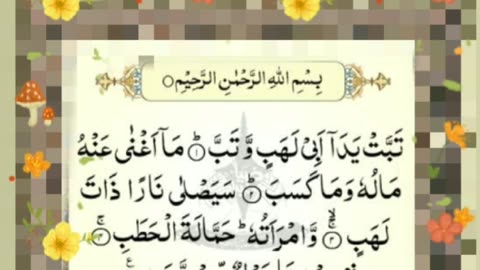 بِسْمِ اللهِ الرَّحْمٰنِ الرَّحِيْمِ
تَبَّتْ يَدَاۤ اَبِيْ لَهَبٍ وَّ تَبَّ ؕ ۱ مَاۤ اَغْنٰى عَنْهُ
مَالُهٗ وَ مَا كَسَبَ ؕ ۲ سَيَصْلٰى نَارًا ذَاتَ
لَهَبٍ ۚۖ ۳ وَّ امْرَاَتُهٗ ؕ حَمَّالَةَ الْحَطَبِ ۚ ۴